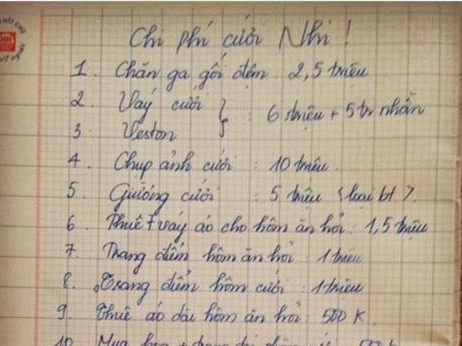 Chi phí cưới Nhi !
1. Chăn ga gối đệm : 2,5 triệu
2. Váy cưới
3. Veston } : 6 triệu + 5 tr nhẫn
4. Chụp ảnh cưới : 10 triệu.
5. Giường cưới : 5 triệu < loại bt >.
6. Thuê + váy áo cho hôm ăn hỏi : 1,5 triệu
7. Trang điểm hôm ăn hỏi : 1 triệu
8. Trang điểm hôm cưới : 1 triệu
9. Thuê áo dài hôm ăn hỏi : 500 K.
10. Mua hoa +